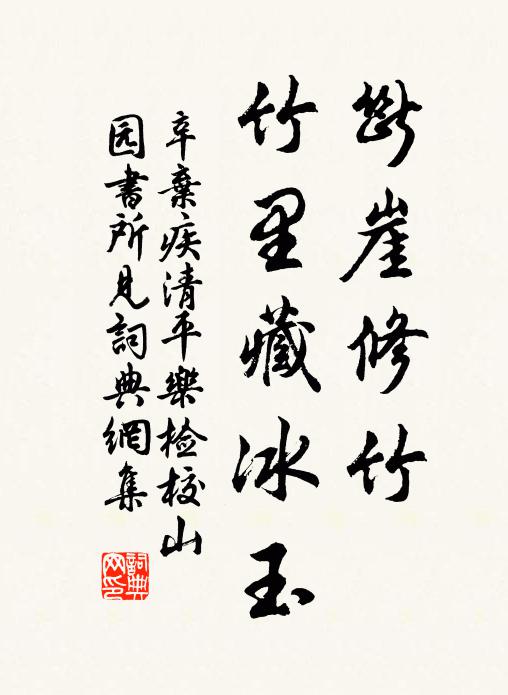 斷崖修竹
竹里藏冰玉
辛棄疾清平樂检校山
园書所見詞典網集
詞典
网印